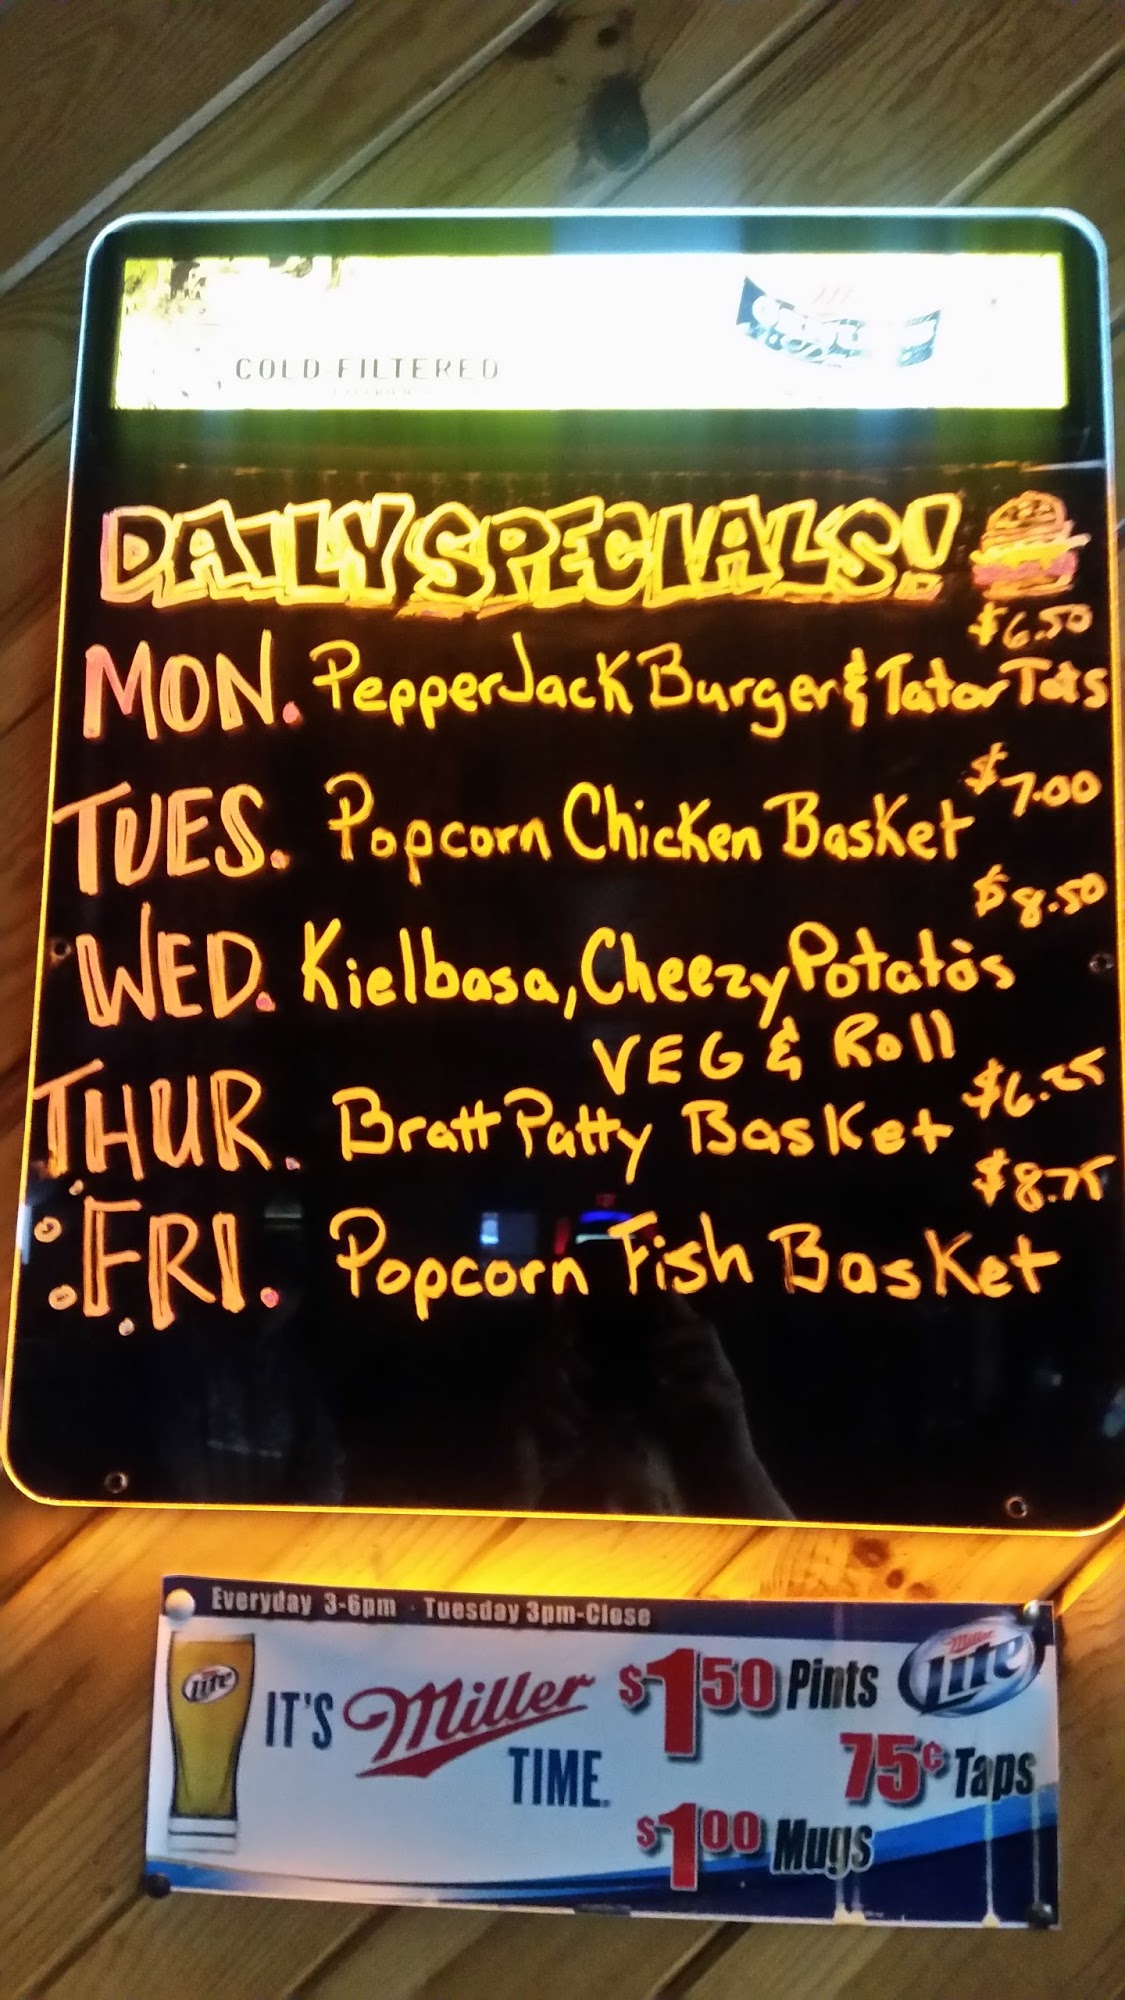 COLD-FILTERED
DAILY SPECIALS!
$6.50
MON. PepperJack Burger & Tator Tots
$7.00
TUES. Popcorn Chicken Basket
$8.50
WED. Kielbasa, Cheezy Potato's
VEG & Roll
$6.25
THUR. Bratt Patty Basket
$8.75
FRI. Popcorn Fish Basket
Everyday 3-6pm · Tuesday 3pm-Close
Lite
IT'S Miller TIME.
$1.50 Pints
Miller Lite
75¢ Taps
$1.00 Mugs